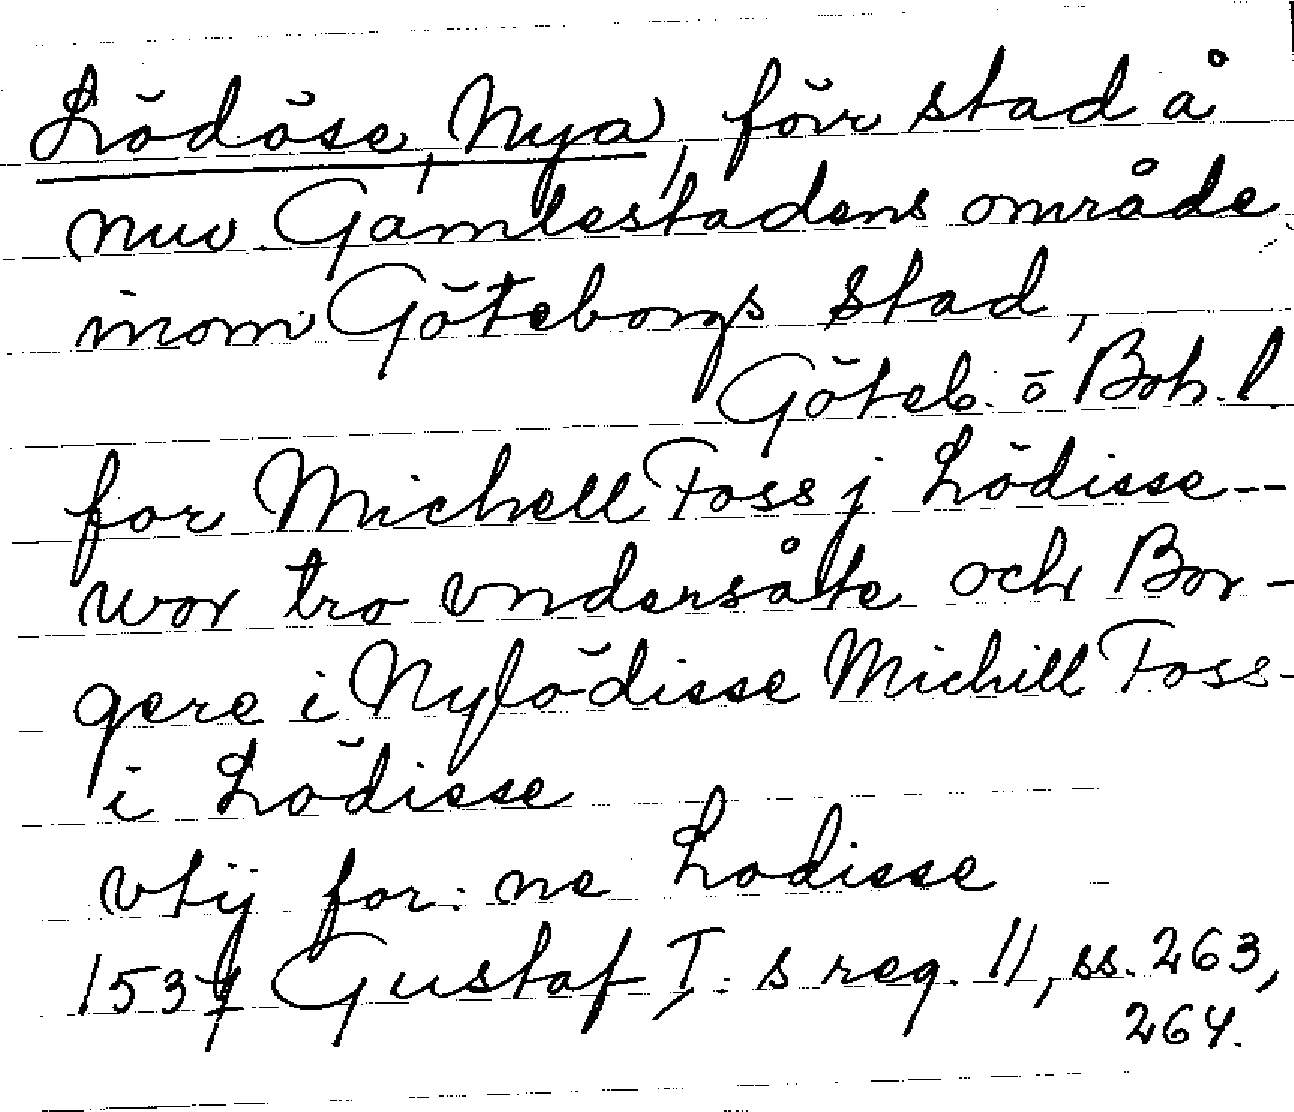 Lödöse, Nya, förr stad å
nuv. Gamlestadens område
inom Göteborgs stad,
Göteb. o Boh. l
for Michell Foss j Lödisse--
wor tro vndersåte och Bor-
gere i Nylödisse Michill Foss-
i Lödisse
vtij for:ne Lodisse
1537 Gustaf I:s reg. 11, ss. 263,
264.